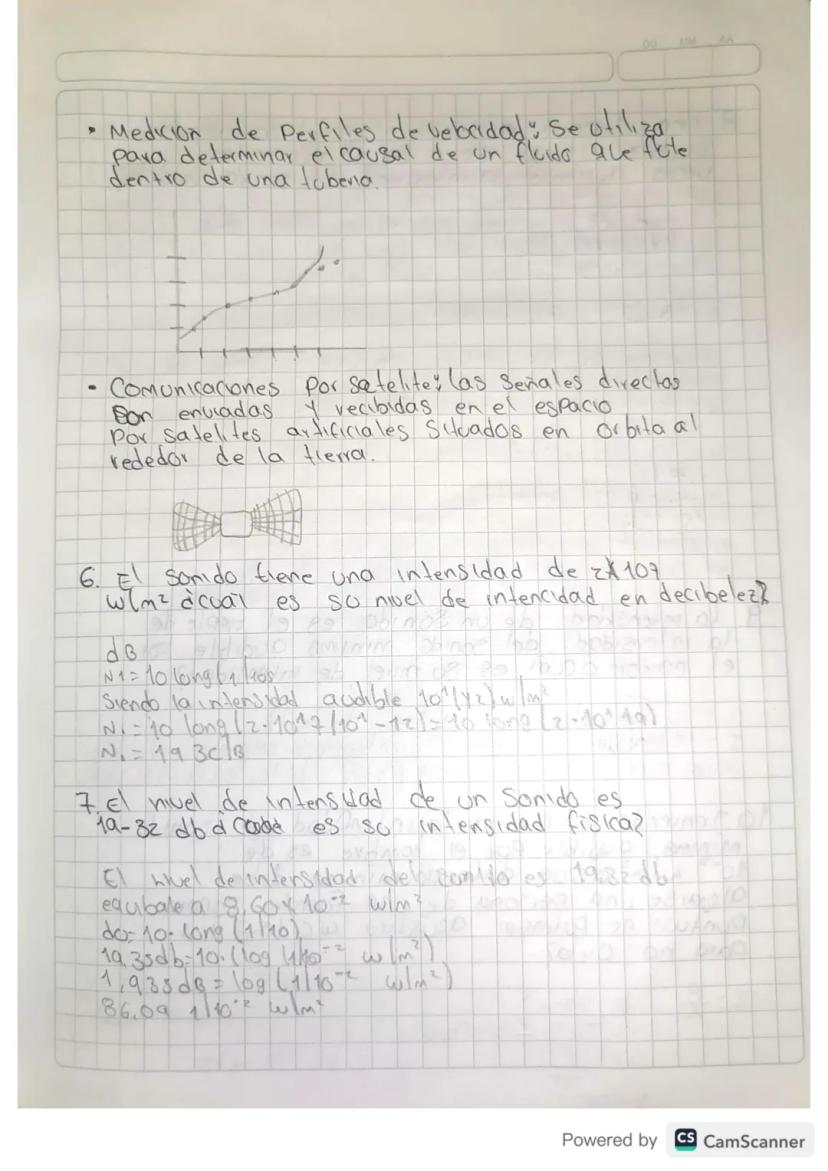 DD MM AA
• Medicion de Perfiles de velocidad: Se utiliza
para determinar el causal de un fluido que flute
dentro de una tuberia.
• Comunicaciones Por satelite: las Señales directas
son enviadas y recibidas en el espacio
Por satelites artificiales situados en orbita al
rededor de la tierra.
6. El sonido tiene una intensidad de 2*107
w/m² ¿cual es so nivel de intencidad en decibelez?
dB
N1= 10 long
Siendo la intensidad audible w/m²
N1= 10 long (2·10^17/10^1-12)=10 long (2·10^19)
N1= 193
7. El nivel de intensidad de un Sonido es
19-32 db ¿ es so intensidad fisica?
El nivel de intersidad del es 19.32 db
equibale a 8,60x10⁻² w/m²
do= 10· long (1/10)
19,35db=10·(log 1/10⁻² w/m²)
1,935dB = log (1/10⁻² w/m²)
86,09 1/10⁻² w/m²
Powered by CS CamScanner